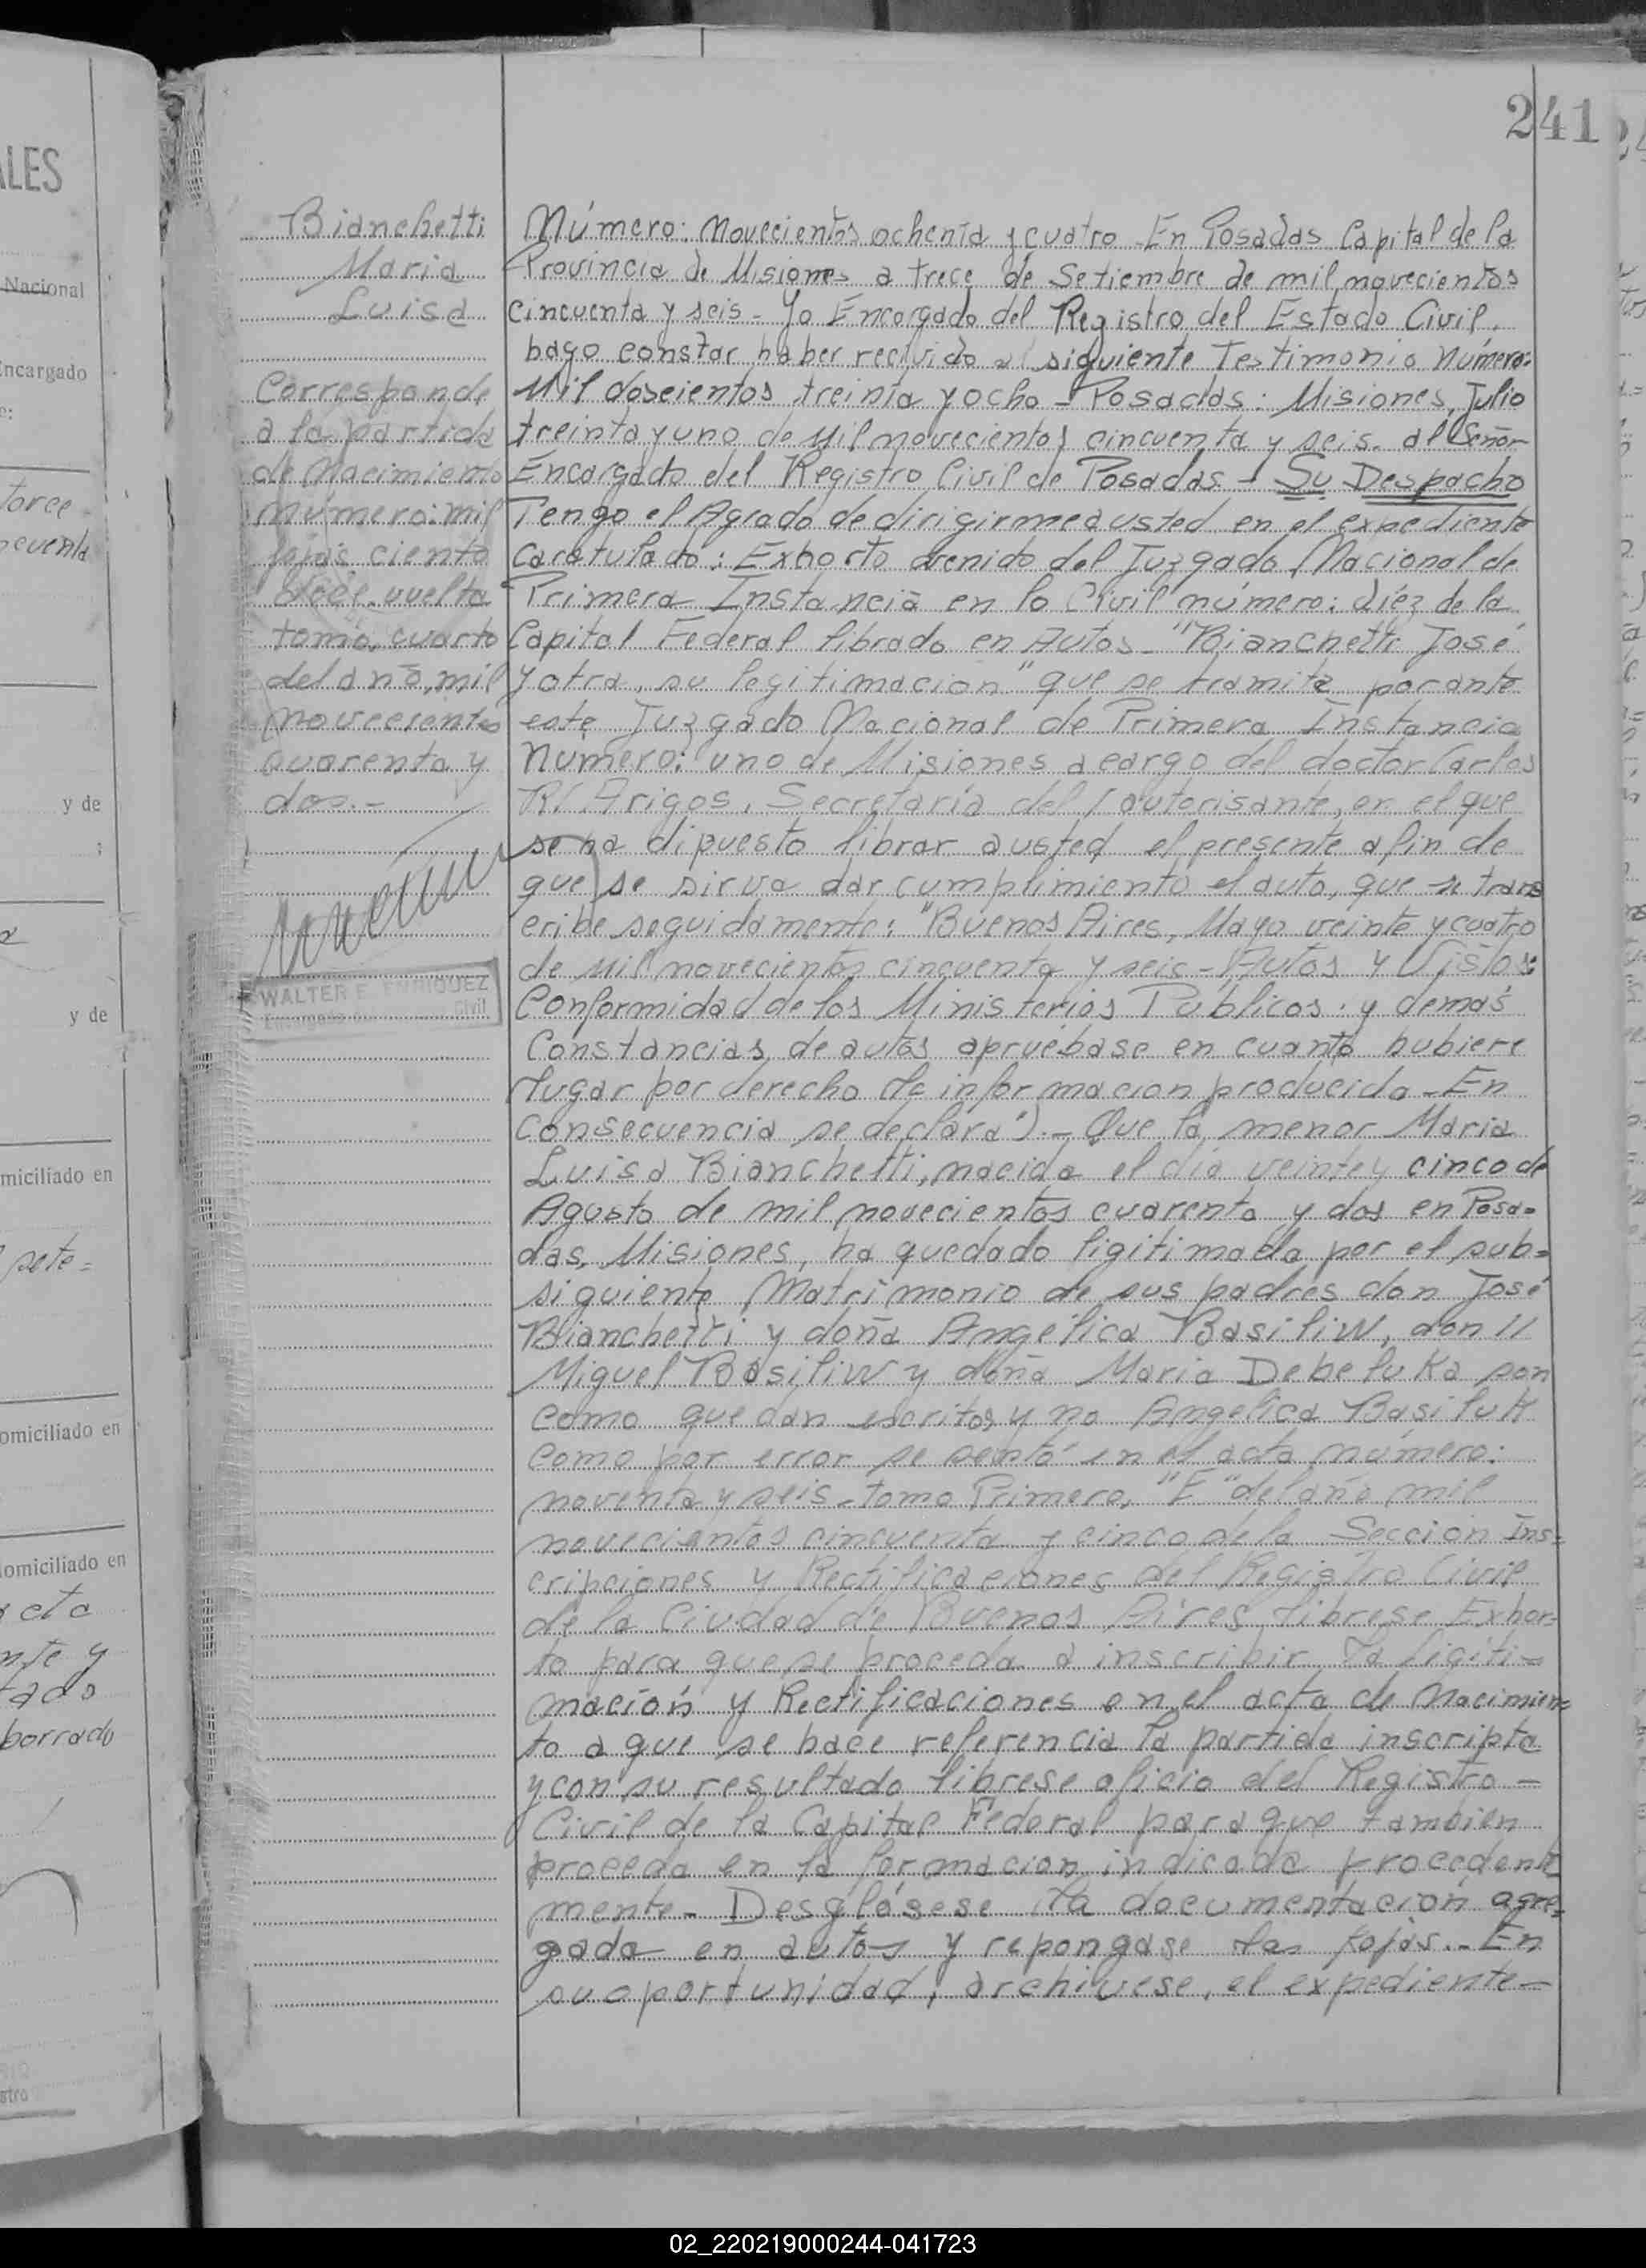 241
ALES
Nacional
Encargado
y de
y de
miciliado en
omiciliado en
domiciliado en
borrado
Bianchetti
Maria
Luisa
Corresponde
a la partida
de Nacimiento
número: mil
fojas ciento
doce vuelta
tomo, cuarto
del año, mil
novecientos
cuarenta y
dos.-
WALTER E. ENRIQUEZ
Encargado Civil
Número: Novecientos ochenta y cuatro - En Posadas Capital de la
Provincia de Misiones a trece de Setiembre de mil novecientos
cincuenta y seis - Yo Encargado del Registro del Estado Civil,
hago constar haber recivido el siguiente Testimonio Número:
Mil doscientos treinta y ocho - Posadas: Misiones, Julio
treinta y uno de Mil novecientos cincuenta y seis. al Señor
Encargado del Registro Civil de Posadas - Su Despacho
Tengo el Agrado de dirigirme a usted en el expediente
caratulado: Exhorto venido del Juzgado Nacional de
Primera Instancia en lo Civil número: diéz de la
Capital Federal librado en Autos - "Bianchetti José
y otra, su legitimación" que se tramita por ante
este Juzgado Nacional de Primera Instancia
Número: uno de Misiones a cargo del doctor Carlos
R/ Arigos, Secretaría del autorisante, en el que
se ha dipuesto librar a usted el presente a fin de
que se sirva dar cumplimiento el auto, que se trans
cribe seguidamente: "Buenos Aires, Mayo veinte y cuatro
de Mil novecientos cincuenta y seis - Autos y Vistos:
Conformidad de los Ministerios Públicos: y demás
Constancias de autos apruébase en cuanto hubiere
lugar por derecho la informacion producida - En
Consecuencia se declara"). - Que la menor Maria
Luisa Bianchetti, nacida el día veinte y cinco de
Agosto de mil novecientos cuarenta y dos en Posa=
das, Misiones, ha quedado ligitimada por el sub=
siguiente Matrimonio de sus padres don José
Bianchetti y doña Angélica Basiliw, don //
Miguel Basiliw y doña Maria Debeluka son
como quedan escritos y no Angelica Basiluk
como por error se sentó en el acta número:
noventa y seis - tomo Primero, "E" del año mil
novecientos cincuenta y cinco de la Sección Ins=
cripciones y Rectificaciones del Registro Civil
de la Ciudad de Buenos Aires, librese Exhor=
to para que se proceda a inscribir la ligiti=
mación y Rectificaciones en el acta de Nacimien=
to a que se hace referencia la partida inscripta
y con su resultado librese oficio del Registro -
Civil de la Capital Federal para que tambien
proceda en la formacion indicada procedente
mente - Desglósese la documentación agre=
gada en autos y repongase las fojas. - En
su oportunidad, archivese, el expediente -
02_220219000244-041723